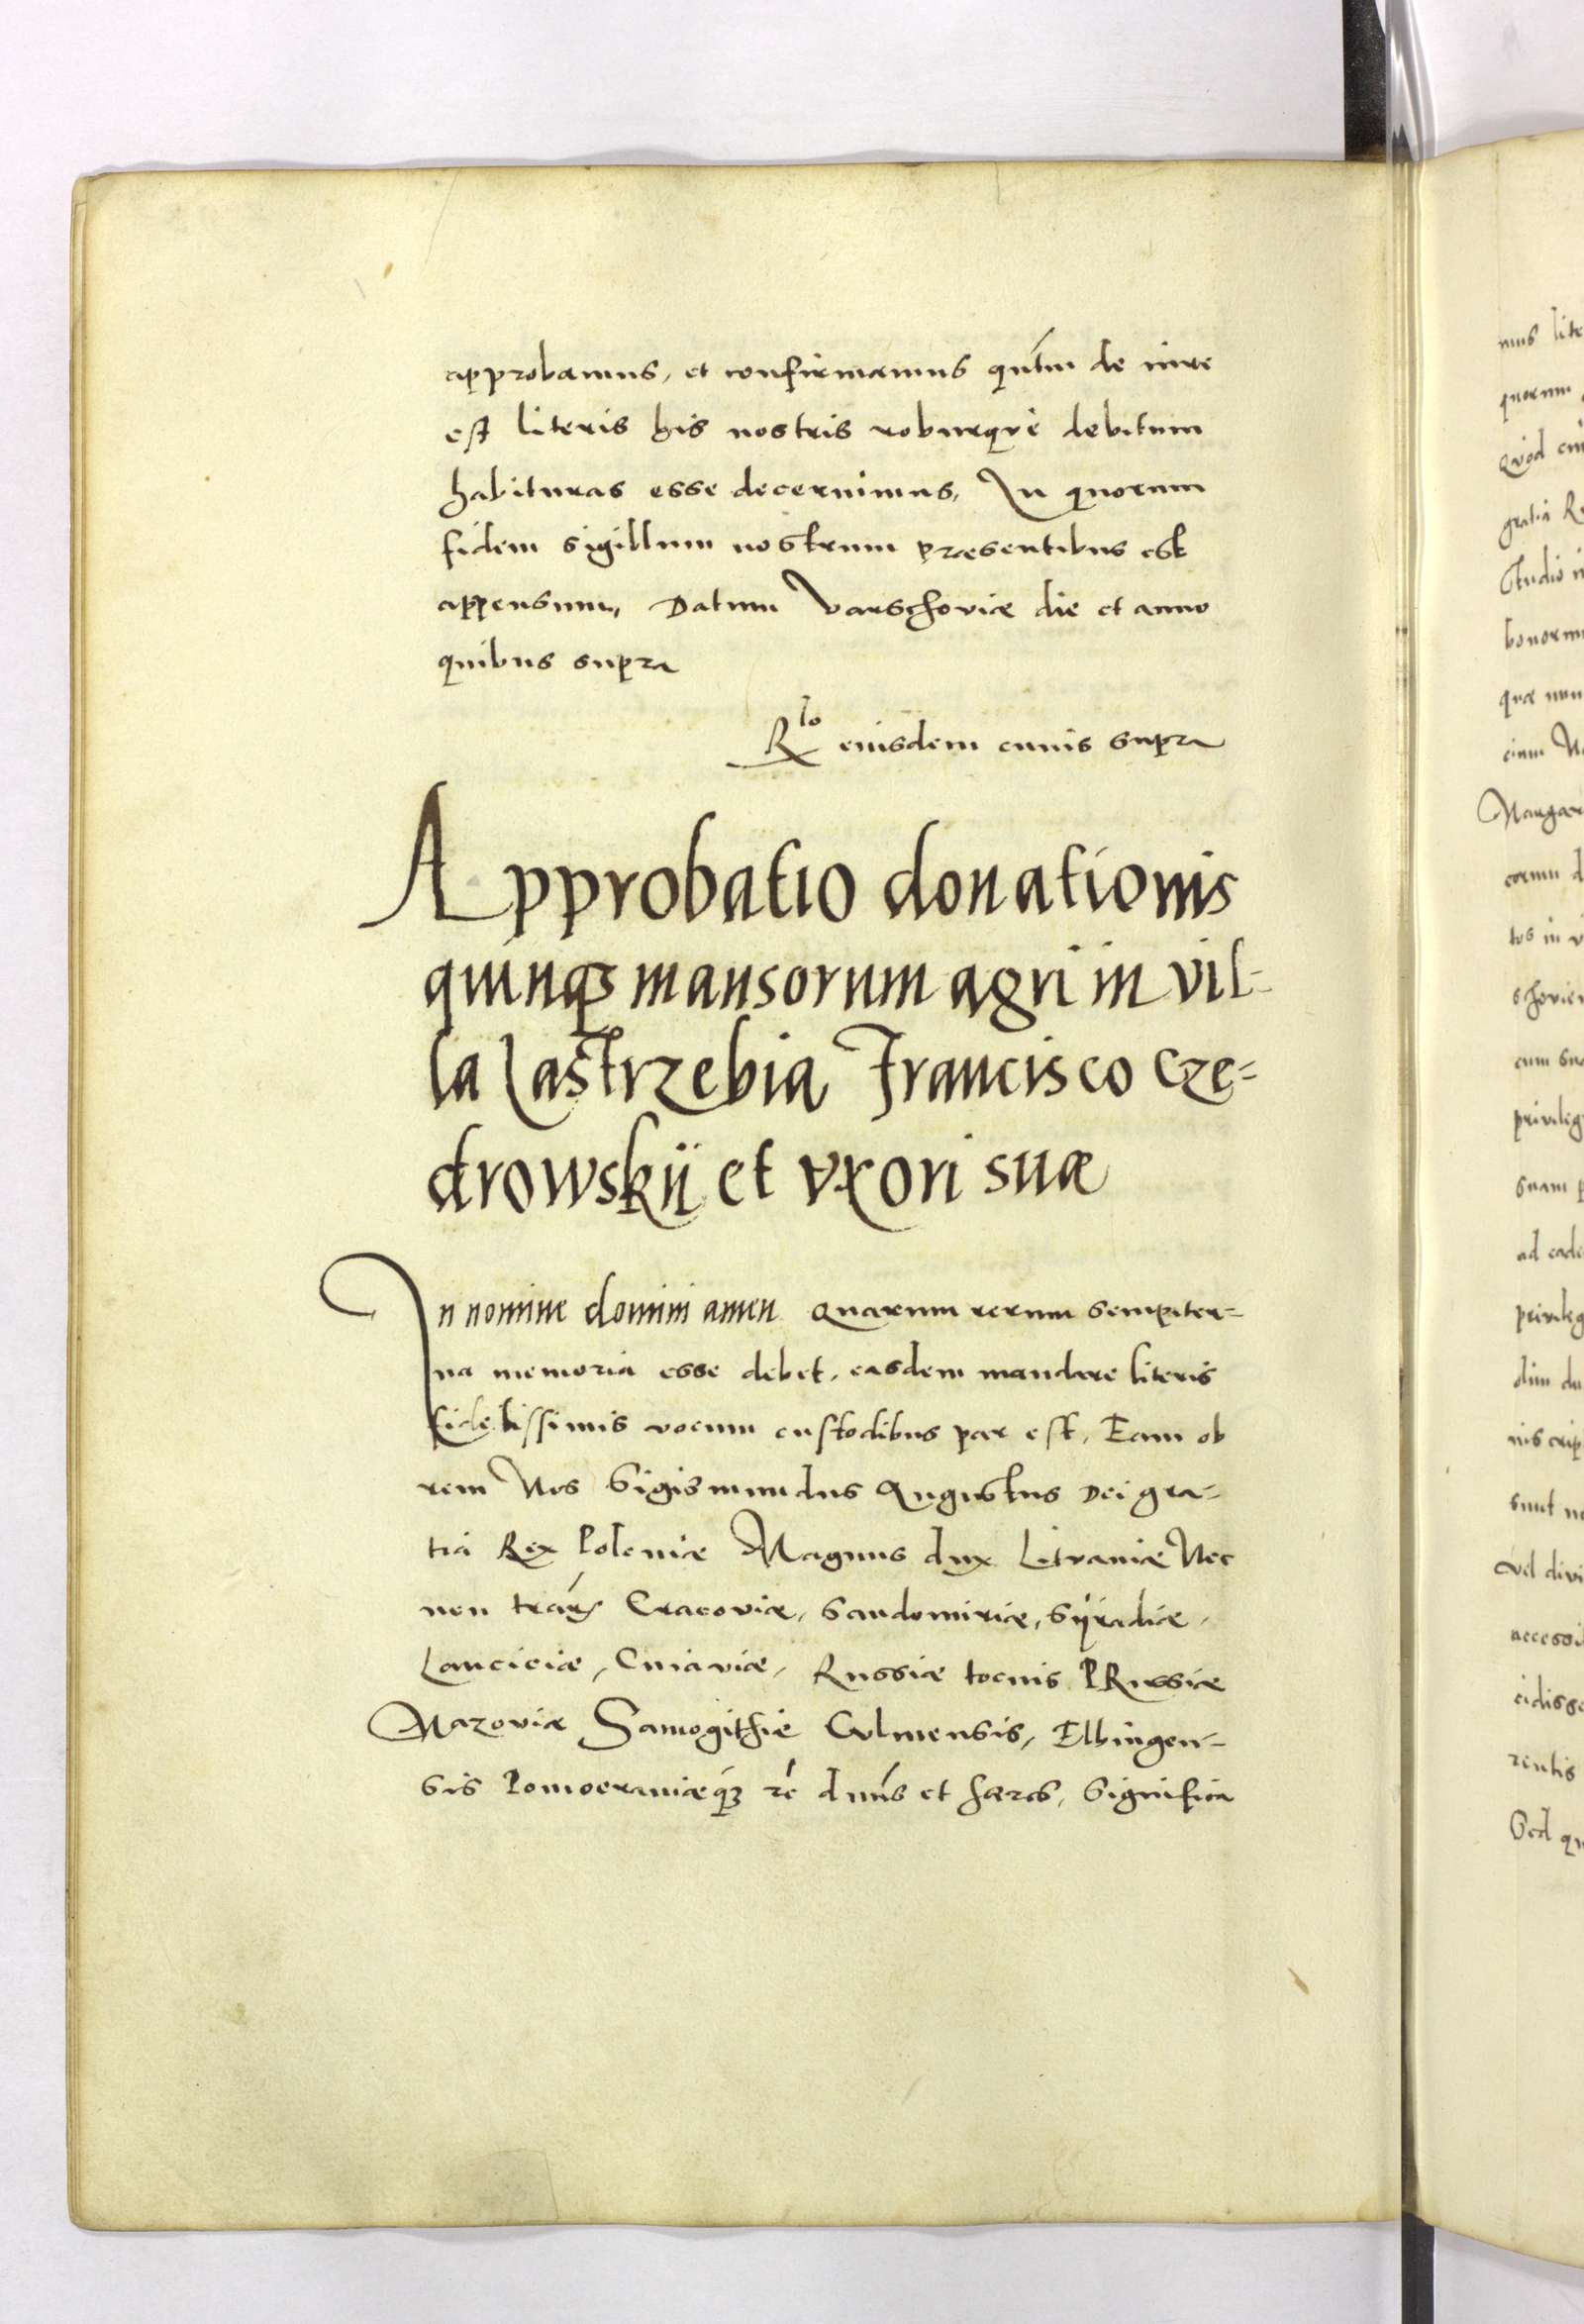 approbamus, et confirmamus qu̅tm de iure
est literis his nostris roburque debitum
habituras esse decernimus, In quorum
fidem sigillum nostrum præsentibus est
appensum, Datum Varschoviæ die et anno
quibus supra
Rlo eiusdem cuius supra
Approbatio donationis
quinq3 mansorum agri in vil-
la Iastrzebia Francisco Cze-
drowskij et vxori suæ
In nomine domini amen Quarum rerum sempiter-
na memoria esse debet, easdem mandare literis
fidelissimis vocum custodibus par est, Eam ob
rem Nos Sigismundus Augustus Dei gra-
tia Rex Poloniæ Magnus dux Lituaniæ Nec
non trarꝝ Cracoviæ, Sandomiriæ, Syradiæ,
Lanciciæ, Cuiaviæ, Russiæ tocius PRussiæ
Mazoviæ Samogithiæ Culmensis, Elbingen-
sis Pomoeraniæq3 rē dnns et hæres, Significa
mus lite
quorum
Quod cui
gratia R
Studio i
bonorum
quæ nun
Margar
tos in v
schovien
cum su
privileg
suam p
ad eade
privileg
sunt no
vel divi
accessi
cidisse
rentis
Sed qu